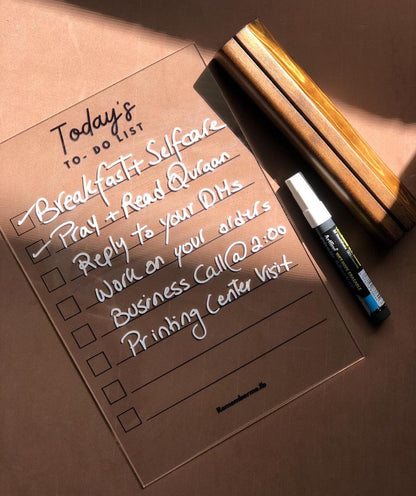 Today's
TO-DO LIST
Breakfast + Selfcare
Pray + Read Quraan
Reply to your DMs
Work on your orders
Business Call @ 2:00
Printing Center Visit